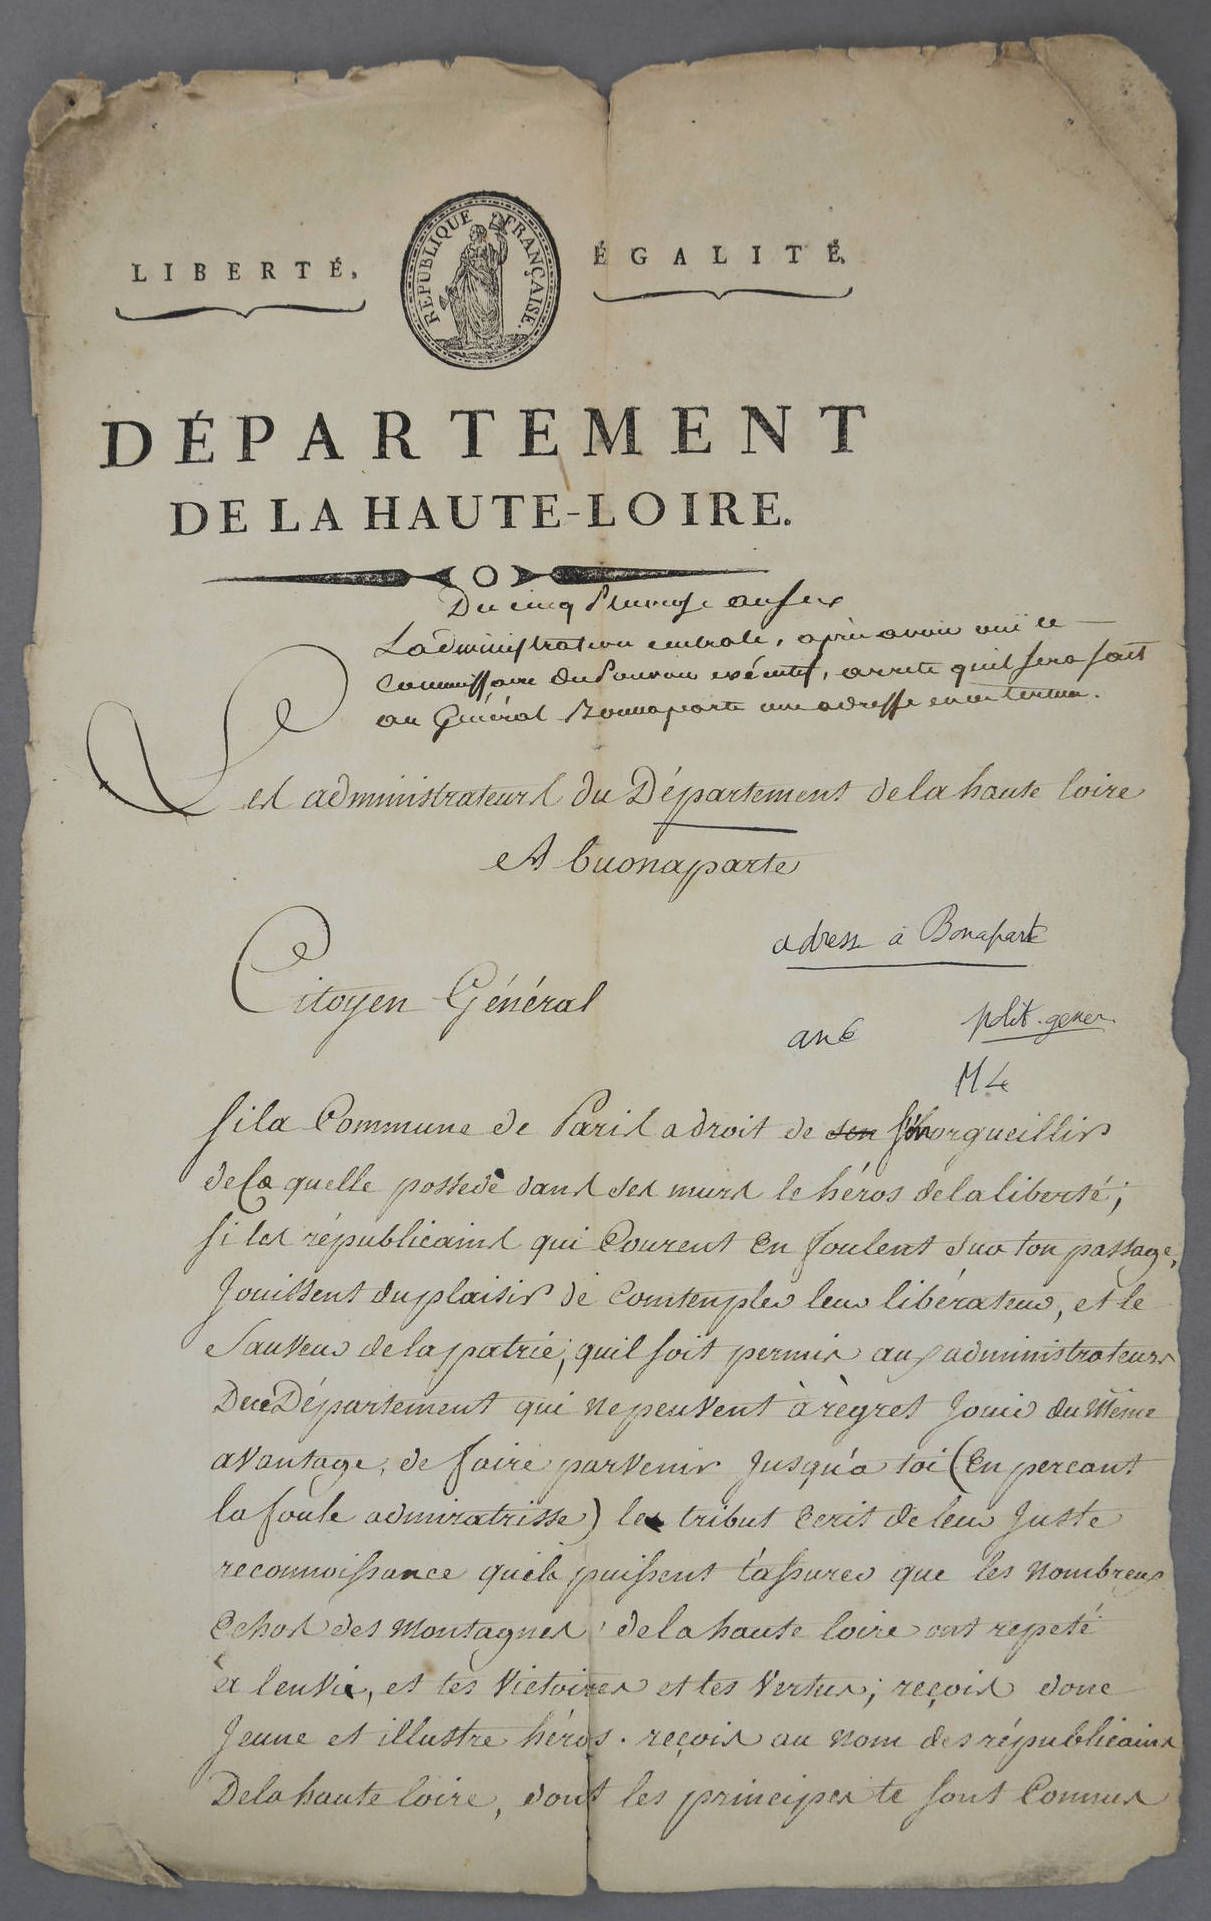 LIBERTÉ,
RÉPUBLIQUE FRANÇAISE.
ÉGALITÉ,
DÉPARTEMENT
DE LA HAUTE-LOIRE.
Du cinq Pluviose an six
L'administration centrale, après avoir ouï le
Commissaire du Pouvoir exécutif, arrete quil sera fait
au Général Bonnaparte une adresse en ces termes.
Les administrateurs du Département de la haute loire
A buonaparte
adresse à Bonaparte
Citoyen Général
an 6
polit. géner.
M 4
Si la Commune de Paris a droit de sen s'énorgueillir
de ce quelle possede dans ses murs le héros de la liberté;
si les républicains qui Courent En foulent sur ton passage,
Jouissent du plaisir de Comtempler leur libérateur, et le
Sauveur de la patrie; quil soit permis aux administrateurs
De ce Département qui ne peuvent à règret Jouir du Même
avantage, de faire parvenir Jusqu'a toi (En percant
la foule admiratrisse) le tribut Ecrit de leur Juste
reconnoissance quils puissent t'assurer que les Nombreux
Echos des Montagnes de la haute loire ont repeté
a lenvie, et tes Victoires et tes Vertus; reçois donc
Jeune et illustre héros. reçois au Nom des républicains
De la haute loire, dont les principes te sont Connus